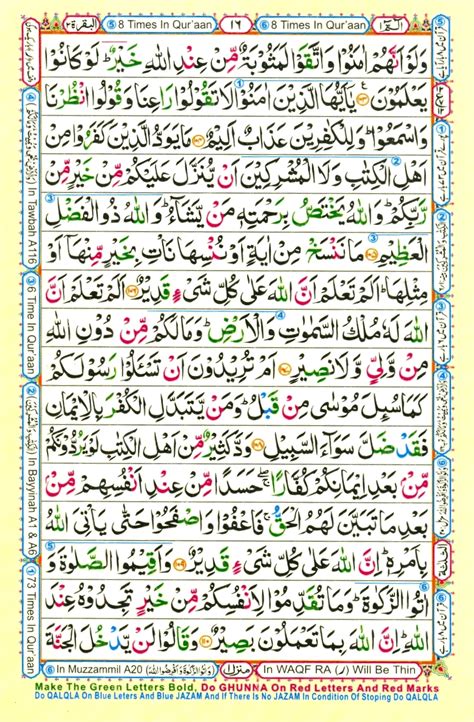 البقرة ٢
⑤ 8 Times In Qur'aan
١٦
⑥ 8 Times In Qur'aan
الٓمّٓ ١
وَلَوْ اَنَّهُمْ اٰمَنُوْا وَاتَّقَوْا لَمَثُوْبَةٌ مِّنْ عِنْدِ اللّٰهِ خَيْرٌ ؕ لَوْ كَانُوْا
يَعْلَمُوْنَ ۝ يٰۤاَيُّهَا الَّذِيْنَ اٰمَنُوْا لَا تَقُوْلُوْا رَاعِنَا وَقُوْلُوا انْظُرْنَا
وَاسْمَعُوْا ؕ وَلِلْكٰفِرِيْنَ عَذَابٌ اَلِيْمٌ ۝ مَا يَوَدُّ الَّذِيْنَ كَفَرُوْا مِنْ
اَهْلِ الْكِتٰبِ وَلَا الْمُشْرِكِيْنَ اَنْ يُّنَزَّلَ عَلَيْكُمْ مِّنْ خَيْرٍ مِّنْ
رَّبِّكُمْ ؕ وَاللّٰهُ يَخْتَصُّ بِرَحْمَتِهٖ مَنْ يَّشَآءُ ؕ وَاللّٰهُ ذُو الْفَضْلِ
الْعَظِيْمِ ۝ مَا نَنْسَخْ مِنْ اٰيَةٍ اَوْ نُنْسِهَا نَاْتِ بِخَيْرٍ مِّنْهَاۤ اَوْ
مِثْلِهَا ؕ اَلَمْ تَعْلَمْ اَنَّ اللّٰهَ عَلٰى كُلِّ شَىْءٍ قَدِيْرٌ ۝ اَلَمْ تَعْلَمْ اَنَّ
اللّٰهَ لَهٗ مُلْكُ السَّمٰوٰتِ وَالْاَرْضِ ؕ وَمَا لَكُمْ مِّنْ دُوْنِ اللّٰهِ
مِنْ وَّلِىٍّ وَّلَا نَصِيْرٍ ۝ اَمْ تُرِيْدُوْنَ اَنْ تَسْـَٔلُوْا رَسُوْلَكُمْ
كَمَا سُئِلَ مُوْسٰى مِنْ قَبْلُ ؕ وَمَنْ يَّتَبَدَّلِ الْكُفْرَ بِالْاِيْمَانِ
فَقَدْ ضَلَّ سَوَآءَ السَّبِيْلِ ۝ وَدَّ كَثِيْرٌ مِّنْ اَهْلِ الْكِتٰبِ لَوْ يَرُدُّوْنَكُمْ
مِّنْۢ بَعْدِ اِيْمَانِكُمْ كُفَّارًا ۚ حَسَدًا مِّنْ عِنْدِ اَنْفُسِهِمْ مِّنْۢ
بَعْدِ مَا تَبَيَّنَ لَهُمُ الْحَقُّ ۚ فَاعْفُوْا وَاصْفَحُوْا حَتّٰى يَاْتِىَ اللّٰهُ
بِاَمْرِهٖ ؕ اِنَّ اللّٰهَ عَلٰى كُلِّ شَىْءٍ قَدِيْرٌ ۝ وَاَقِيْمُوا الصَّلٰوةَ وَ
اٰتُوا الزَّكٰوةَ ؕ وَمَا تُقَدِّمُوْا لِاَنْفُسِكُمْ مِّنْ خَيْرٍ تَجِدُوْهُ عِنْدَ
اللّٰهِ ؕ اِنَّ اللّٰهَ بِمَا تَعْمَلُوْنَ بَصِيْرٌ ۝ وَقَالُوْا لَنْ يَّدْخُلَ الْجَنَّةَ
④ In Tawbah A116
③ 6 Time In Qur'aan
② In Bayyinah A1 & A6
① 73 Times In Qur'aan
⑥ In Muzzammil A20
منزل ١
In WAQF RA (ر) Will Be Thin
Make The Green Letters Bold, Do GHUNNA On Red Letters And Red Marks
Do QALQLA On Blue Leters And Blue JAZAM And If There Is No JAZAM In Condition Of Stoping Do QALQLA